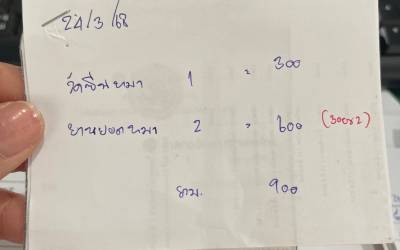 24/3/68
วัคซีนหมา 1 = 300
ยาหยอดหมา 2 = 600 (300x2)
รวม. 900